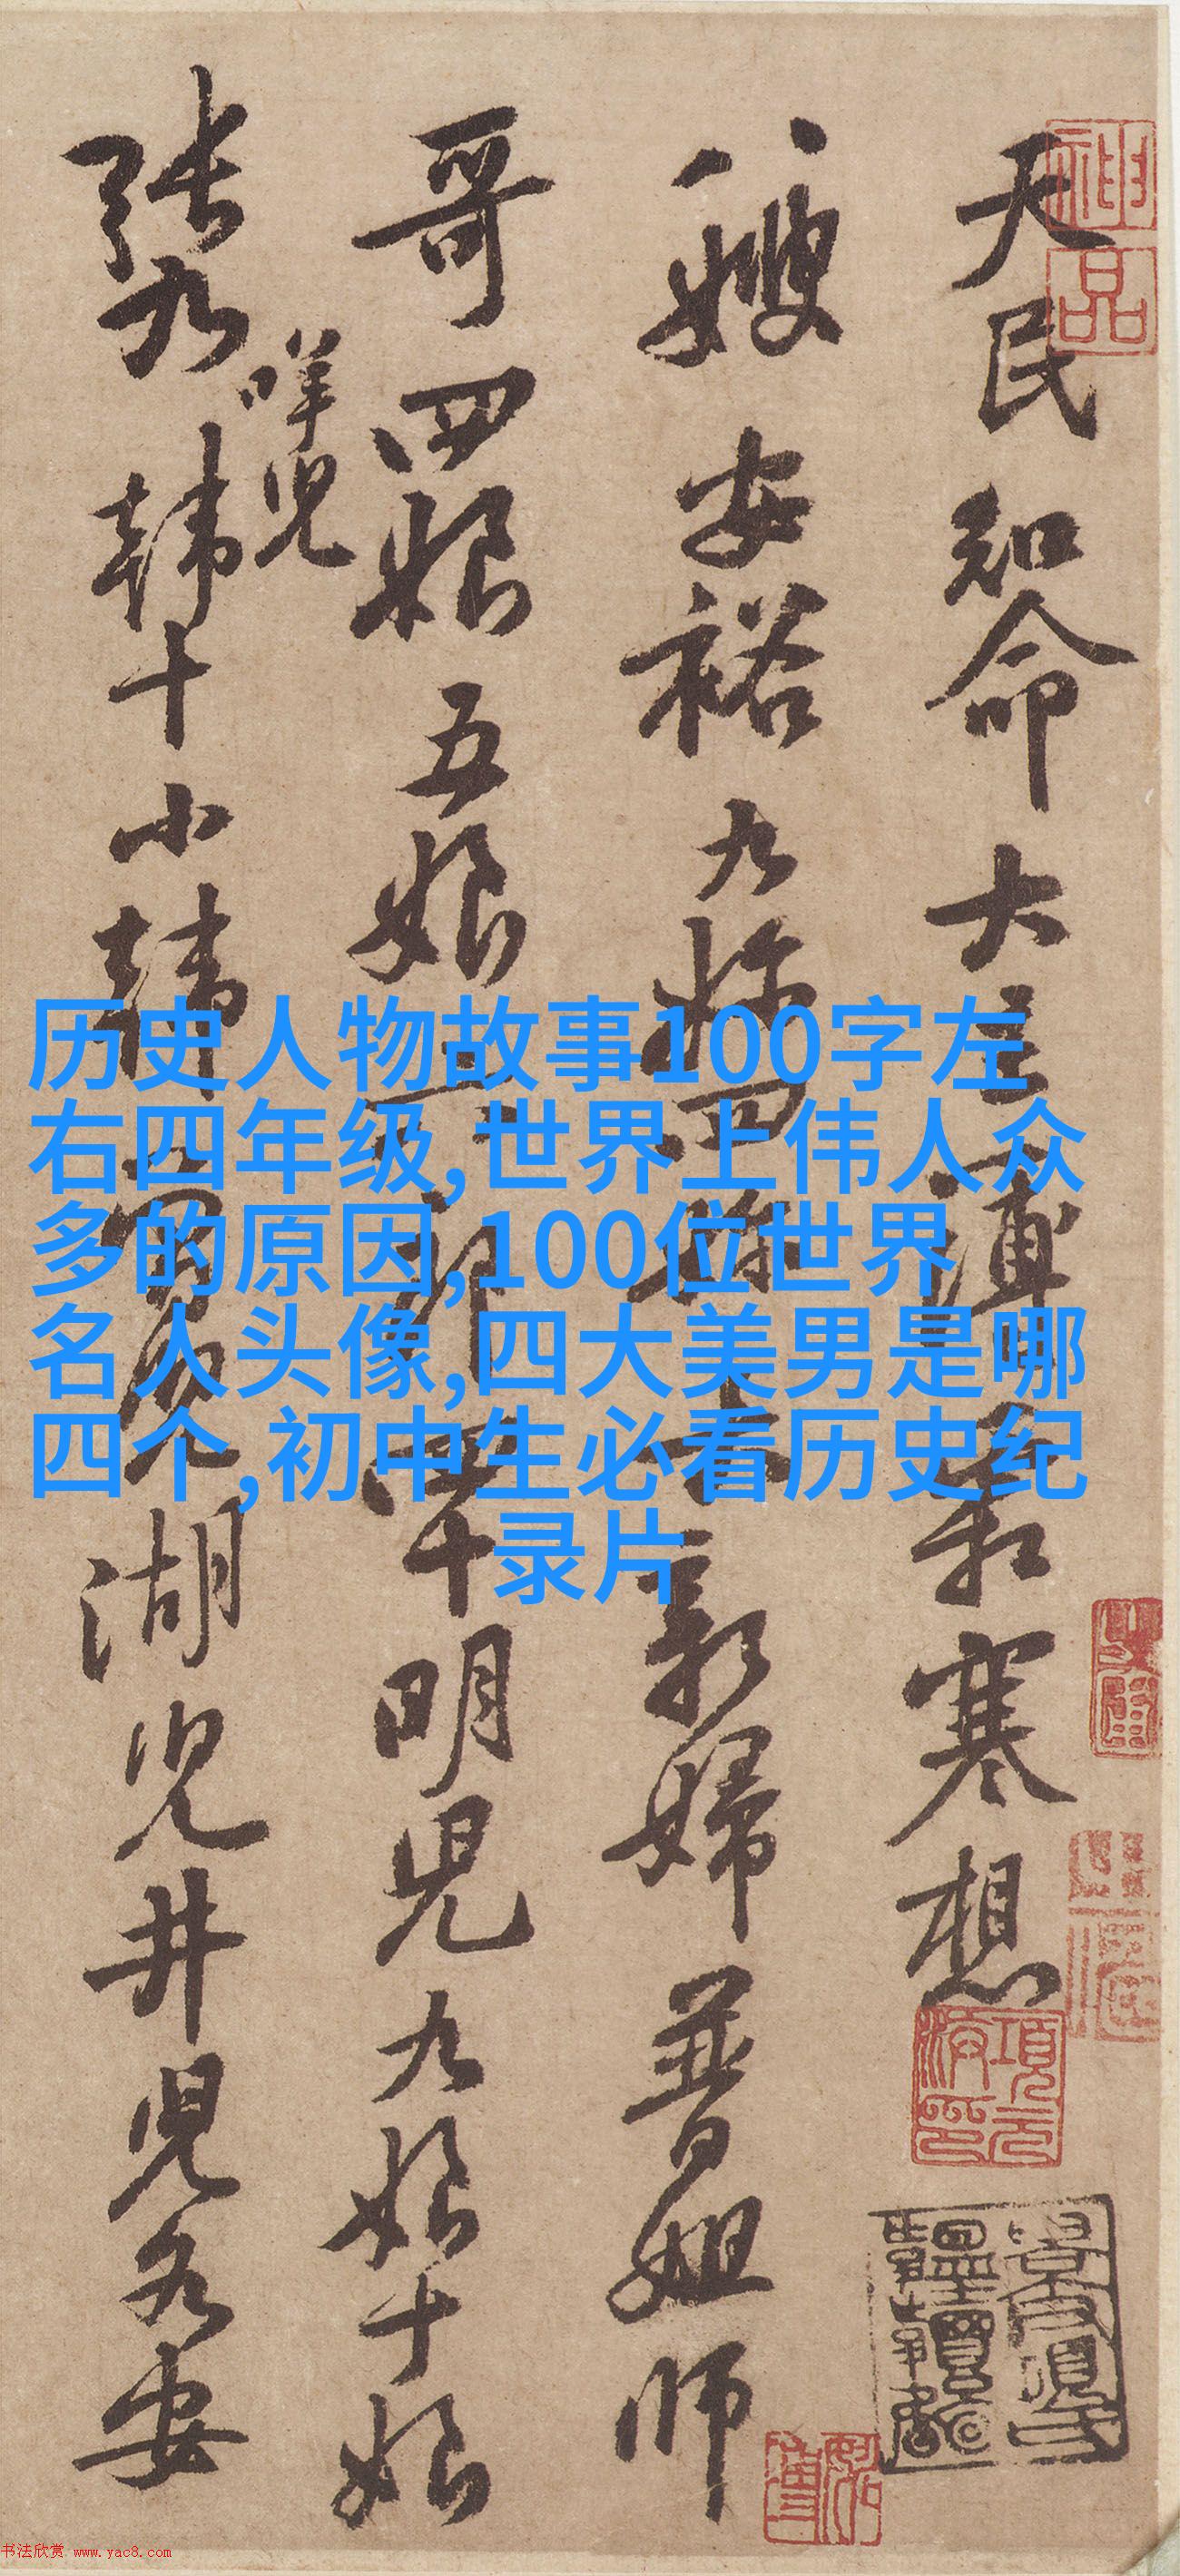 历史人物故事100字左
右四年级,世界上伟人众
多的原因,100位世界
名人头像,四大美男是哪
四个,初中生必看历史纪
录片
天民知命大簿寒想
八嫂安裕九新婦普姐師
哥四娘五娘郎四十明兒九娘十娘
咩兒
張九韓十小韓湖兒井兒各安
神品
書法欣赏 www.yac8.com